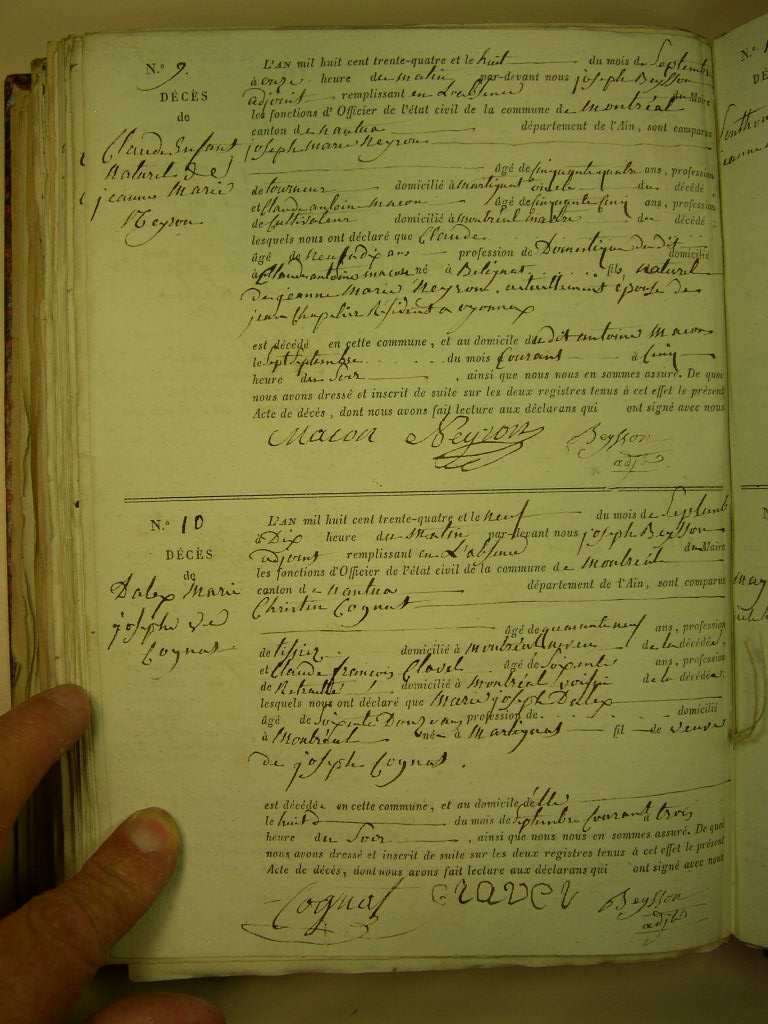 N.º 9.
DÉCÈS
de
Claude Enfant
naturel de
jeanne Marie
Neyron
L'AN mil huit cent trente-quatre et le huit du mois de Septembre
à onze heure du matin par-devant nous joseph Beysson
adjoint remplissant en L'absence du Maire
les fonctions d'Officier de l'état civil de la commune de Montréal
canton de nantua département de l'Ain, sont comparus
joseph Marie Neyron
âgé de cinquante quatre ans, profession
de tourneur domicilié à martignat oncle du décédé
et Claude antoine macon âgé de cinquante cinq ans, profession
de Cultivateur domicilié à montréal maitre du décédé
lesquels nous ont déclaré que Claude
âgé de neuf à dix ans profession de Domestique du dit domicilié
à Claude antoine macon né à Bélignat fils naturel
de jeanne Marie Neyron, actuellement épouse de
jean Chapelier Résident a oyonnax
est décédé en cette commune, et au domicile du dit antoine Macon
le sept septembre du mois Courant à Cinq
heure du Soir, ainsi que nous nous en sommes assuré. De quoi
nous avons dressé et inscrit de suite sur les deux registres tenus à cet effet le présent
Acte de décès, dont nous avons fait lecture aux déclarans qui ont signé avec nous
Macon Neyron Beysson
adjt
N.º 10
DÉCÈS
de
Dalex Marie
josephe ve
Cognat
L'AN mil huit cent trente-quatre et le neuf du mois de Septemb
à Dix heure du Matin par-devant nous joseph Beysson
adjoint remplissant en L'absence du Maire
les fonctions d'Officier de l'état civil de la commune de montréal
canton de nantua département de l'Ain, sont comparus
Christin Cognat
âgé de quarante neuf ans, profession
de tissier domicilié à montréal neveu de la décédée
et Claude françois Clavel âgé de soixente ans, profession
de Retraité domicilié à Montréal voisin de la décédée
lesquels nous ont déclaré que Marie joseph Dalex
âgé de soixente Douze ans profession de domicilié
à Montréal née à Martignat fil de veuve
de joseph Cognat.
est décédée en cette commune, et au domicile d'elle
le huit du mois de septembre Courant à trois
heure du Soir, ainsi que nous nous en sommes assuré. De quoi
nous avons dressé et inscrit de suite sur les deux registres tenus à cet effet le présent
Acte de décès, dont nous avons fait lecture aux déclarans qui ont signé avec nous
Cognat Beysson
adjt